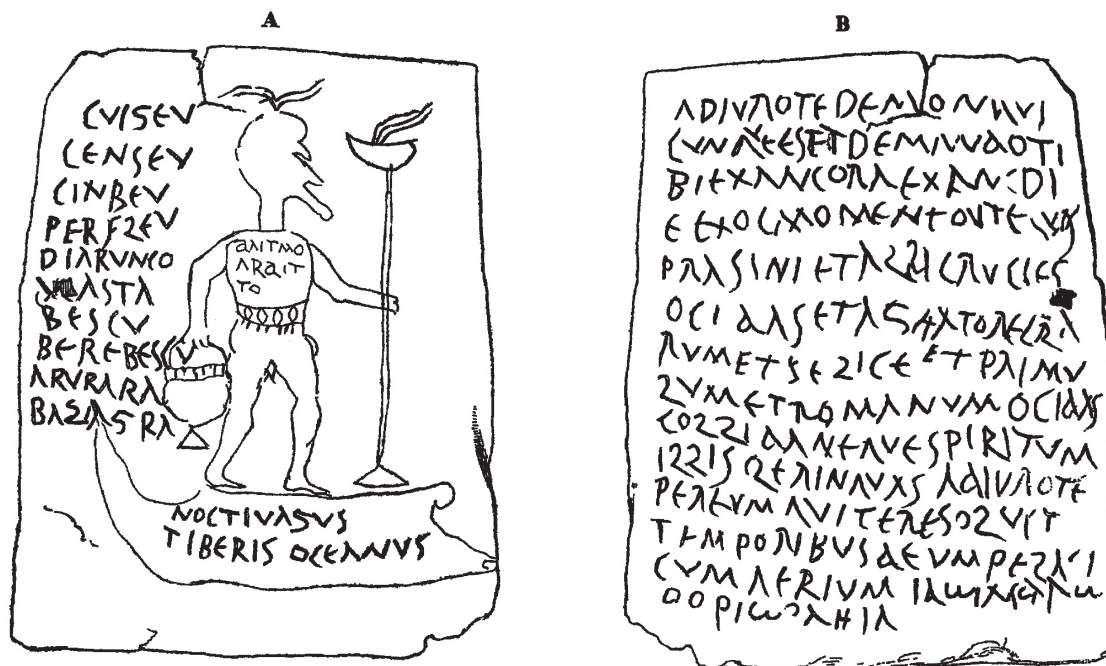 A
CVIGEV
CENSEV
CINBEV
PERFLEV
DIARVNCO
DEASTA
BESCV
BEREBESCV
ARVRARA
BAZAGRA
ANTMO
ARAIT
TO
NOCTIVAGVS
TIBERIS OCEANVS
B
ADIVROTEDEMONQVI
CVNQVEESETDEMANDOTI
BIEXANCORAEXANCDI
EEXOCMOMENTOVTEQVOS
PRASINIETALBICRVCIES
OCIDASETAGITATORECLA
RVMETFELICEETPRIMV
LVMETROMANVMOCIDAS
COLLIDANEQVESPIRITVM
ILLISLERINQVASADIVROTE
PEREVMQVITERESOLVIT
TEMPORIBVSDEVMPELAGI
CVMAERIVM
OOPIω AHIA